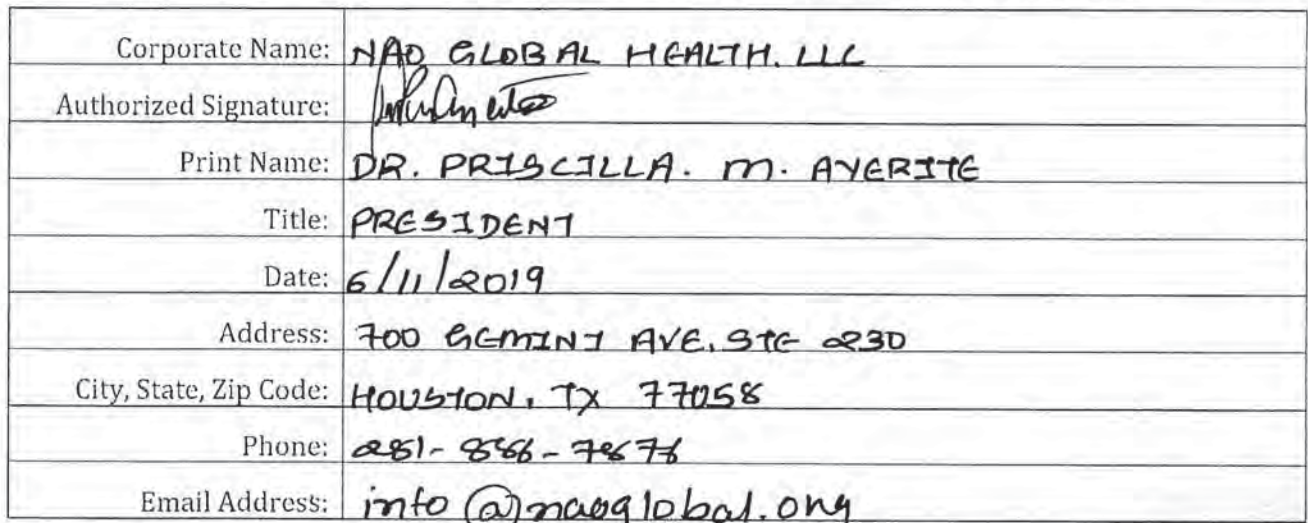 Corporate Name: NAO GLOBAL HEALTH. LLC
Authorized Signature:
Print Name: DR. PRISCILLA. M. AYERITE
Title: PRESIDENT
Date: 6/11/2019
Address: 700 GEMINI AVE, STE 230
City, State, Zip Code: HOUSTON, TX 77058
Phone:
Email Address: info@naoglobal.org